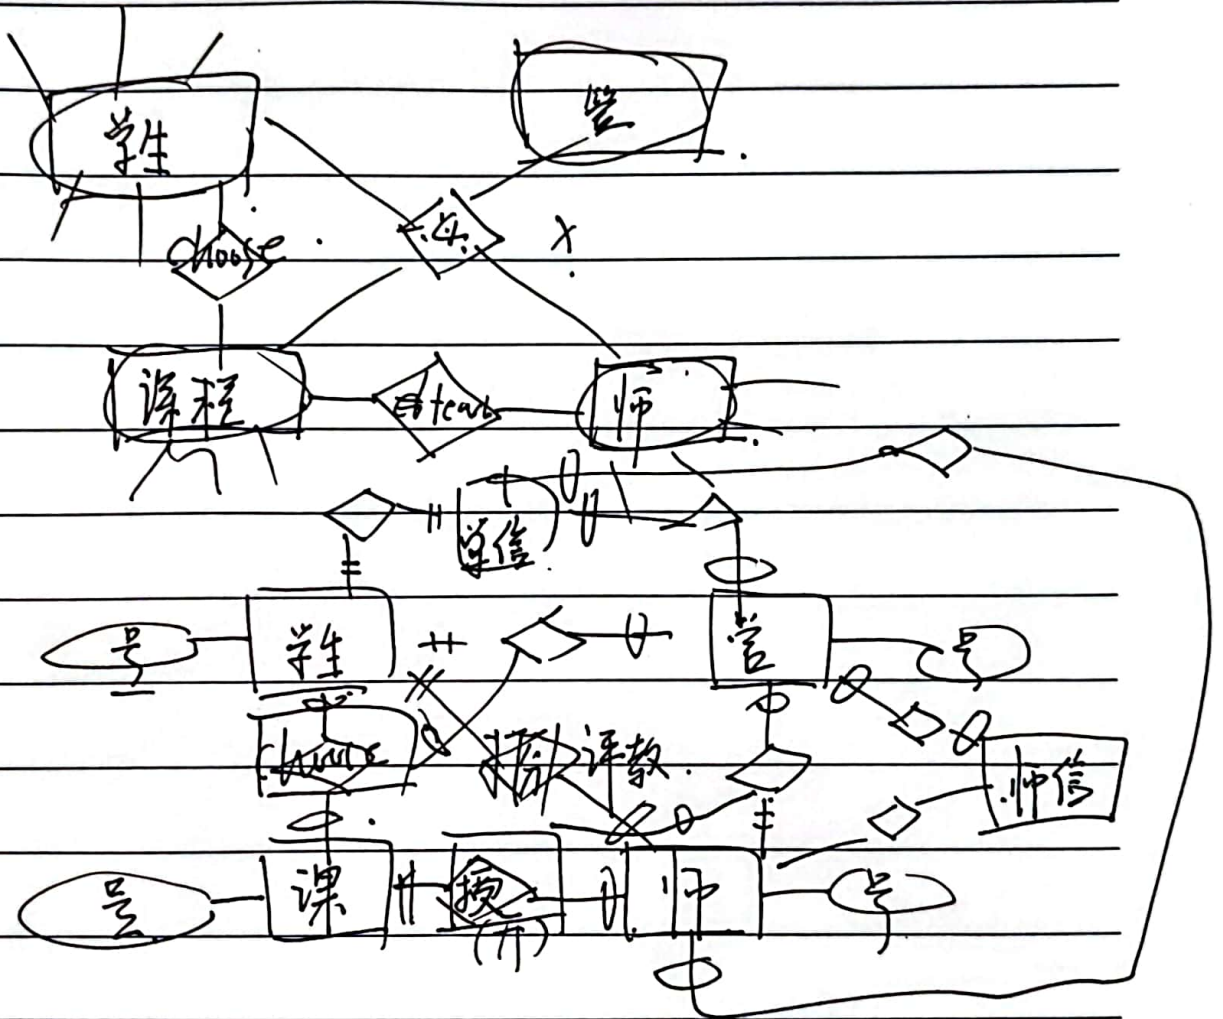 学生
管
choose
课程
师
学信
号
学生
管
号
choose
打分 评教
师信
号
课
授
(开)
师
号